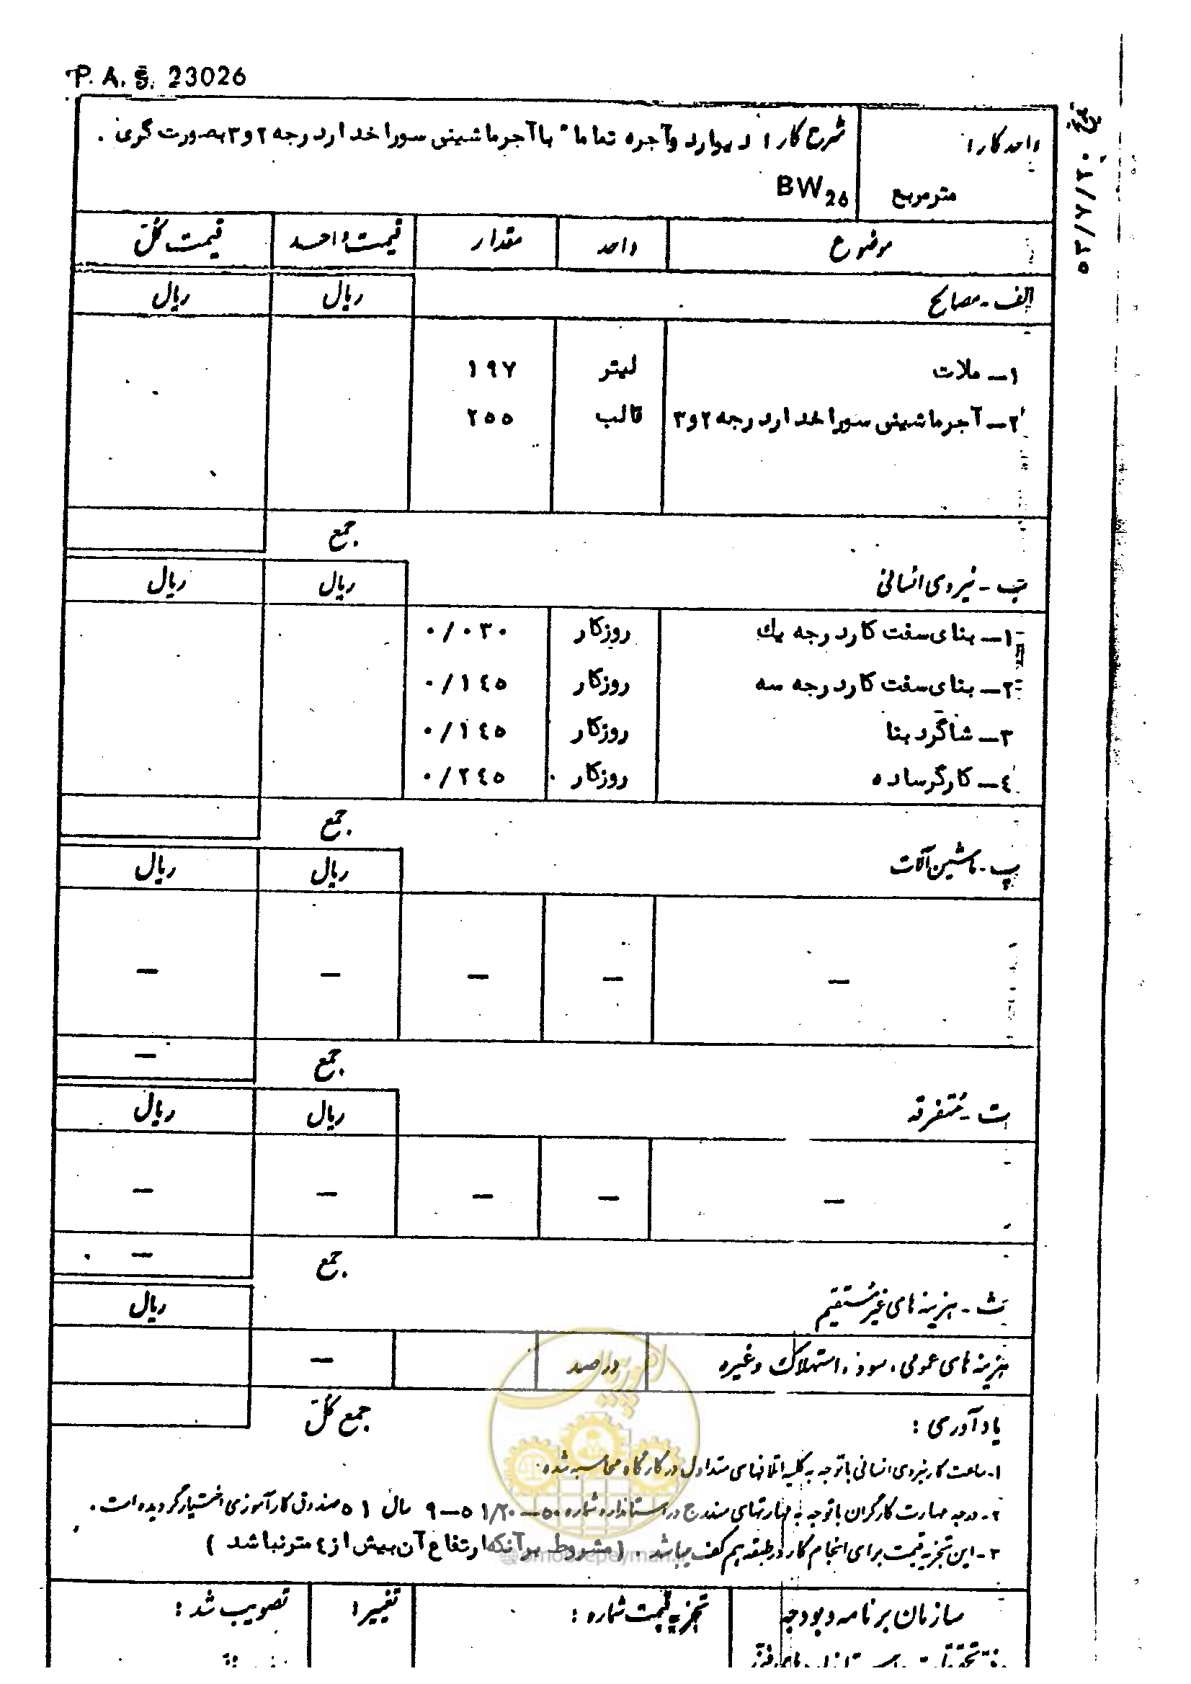 P. A. S. 23026
واحد کار: شرح کار: دیوار دوآجره تماما" با آجر ماشینی سوراخدار درجه ۲ و ۳ بصورت گری .
مترمربع BW26
تاریخ ۵۳/۷/۲۰
موضوع واحد مقدار قیمت واحد قیمت کل
الف - مصالح ریال ریال
۱- ملات لیتر ۱۹۷
۲- آجر ماشینی سوراخدار درجه ۲ و ۳ قالب ۲۵۵
جمع
ب - نیروی انسانی ریال ریال
۱- بنای سفت کار درجه یك روزکار ۰/۰۳۰
۲- بنای سفت کار درجه سه روزکار ۰/۱٤۵
۳- شاگرد بنا روزکار ۰/۱٤۵
٤- کارگر ساده روزکار ۰/۲٤۵
جمع
پ - ماشین آلات ریال ریال
— — — — —
جمع —
ت - متفرقه ریال ریال
— — — — —
جمع —
ث - هزینه های غیر مستقیم ریال
هزینه های عمومی، سود، استهلاک وغیره درصد —
جمع کل
یادآوری :
۱- ساعت کار نیروی انسانی با توجه به کلیه اتلافهای متداول در کارگاه محاسبه شده.
۲- درجه مهارت کارگران با توجه به مهارتهای مندرج در استاندارد شماره ۵۰-۱/۲۰ ۵-۹ سال ۵۱ صندوق کارآموزی اختیار گردیده است .
۳- این تجزیه قیمت برای انجام کار در طبقه هم کف میباشد . (مشروط بر آنکه ارتفاع آن بیش از ٤ متر نباشد )
سازمان برنامه و بودجه تجزیه قیمت شماره : تغییر: تصویب شد :
امور پیمان